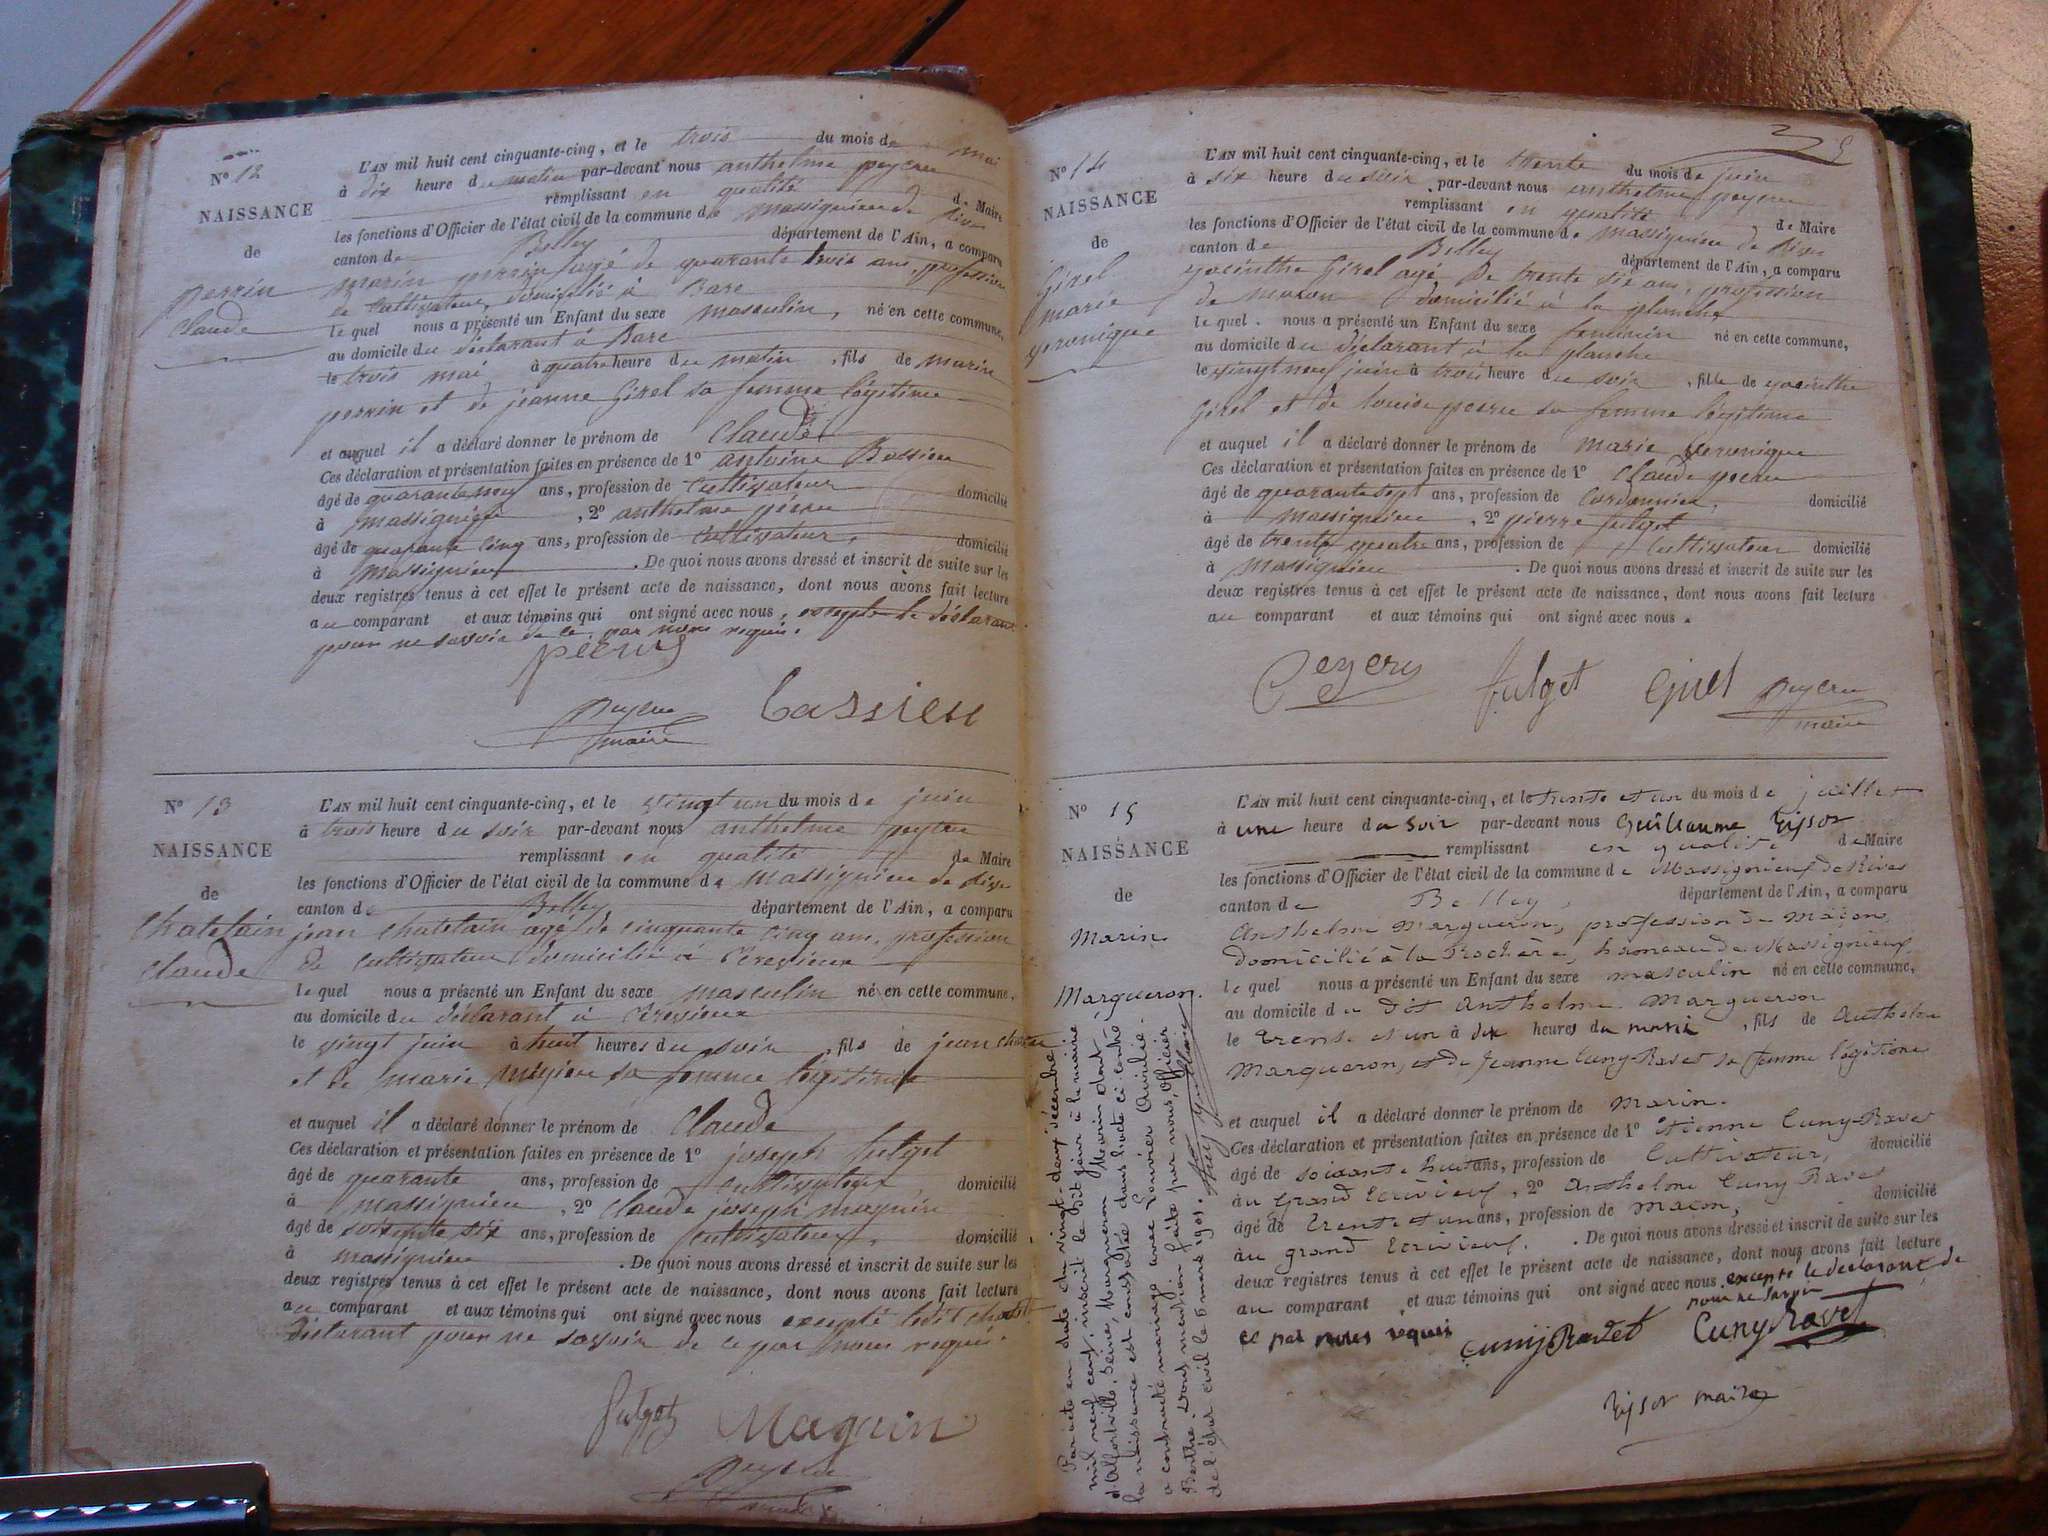 N° 12
NAISSANCE
de
perrin
claude
L'AN mil huit cent cinquante-cinq, et le trois du mois de mai
à dix heure du matin par-devant nous anthelme peyeru
remplissant en qualité de Maire
les fonctions d'Officier de l'état civil de la commune de massignieu de rive
canton de Belley département de l'Ain, a comparu
marin perrin agé de quarante trois ans, profession
de cultivateur, domicilié à Bare
lequel nous a présenté un Enfant du sexe masculin, né en cette commune,
au domicile du déclarant à Bare
le trois mai à quatre heure du matin, fils de marin
perrin et de jeanne Girel sa femme légitime
et auquel il a déclaré donner le prénom de Claude
Ces déclaration et présentation faites en présence de 1° antoine Bassieu
âgé de quarante neuf ans, profession de cultivateur domicilié
à massignieu, 2° anthelme
âgé de quarante cinq ans, profession de cultivateur, domicilié
à massignieu. De quoi nous avons dressé et inscrit de suite sur les
deux registres tenus à cet effet le présent acte de naissance, dont nous avons fait lecture
au comparant et aux témoins qui ont signé avec nous, excepté le déclarant
pour ne savoir de ce par nous requis.
maire
bassieu
N° 13
NAISSANCE
de
Chatelain
claude
L'AN mil huit cent cinquante-cinq, et le vingt un du mois de juin
à trois heure du soir par-devant nous anthelme peyeru
remplissant en qualité de Maire
les fonctions d'Officier de l'état civil de la commune de massignieu de rive
canton de Belley département de l'Ain, a comparu
jean chatelain agé de cinquante cinq ans, profession
de cultivateur domicilié à
lequel nous a présenté un Enfant du sexe masculin né en cette commune,
au domicile du déclarant à
le vingt juin à huit heures du soir, fils de jean
et de marie sa femme légitime
et auquel il a déclaré donner le prénom de Claude
Ces déclaration et présentation faites en présence de 1° joseph fulget
âgé de quarante ans, profession de cultivateur domicilié
à massignieu, 2° claude joseph magnin
âgé de soixante six ans, profession de cultivateur, domicilié
à massignieu. De quoi nous avons dressé et inscrit de suite sur les
deux registres tenus à cet effet le présent acte de naissance, dont nous avons fait lecture
au comparant et aux témoins qui ont signé avec nous excepté ledit
déclarant pour ne savoir de ce par nous requis.
fulget Magnin
N° 14
NAISSANCE
de
Girel
marie
veronique
L'AN mil huit cent cinquante-cinq, et le trente du mois de juin
à six heure du soir par-devant nous anthelme peyeru
remplissant en qualité de Maire
les fonctions d'Officier de l'état civil de la commune de massignieu de rive
canton de Belley département de l'Ain, a comparu
yacinthe Girel agé de trente six ans, profession
de macon domicilié à la planche
lequel nous a présenté un Enfant du sexe feminin né en cette commune,
au domicile du déclarant à la planche
le vingt neuf juin à trois heure du soir, fille de yacinthe
Girel et de louise sa femme légitime
et auquel il a déclaré donner le prénom de marie veronique
Ces déclaration et présentation faites en présence de 1° claude
âgé de quarante sept ans, profession de cordonnier, domicilié
à massignieu, 2° pierre fulget
âgé de trente quatre ans, profession de cultivateur domicilié
à massignieu. De quoi nous avons dressé et inscrit de suite sur les
deux registres tenus à cet effet le présent acte de naissance, dont nous avons fait lecture
au comparant et aux témoins qui ont signé avec nous.
fulget Girel
maire
N° 15
NAISSANCE
de
Marin
Margueron.
L'AN mil huit cent cinquante-cinq, et le trente et un du mois de juillet
à une heure du soir par-devant nous Guillaume Tissot
remplissant en qualité de Maire
les fonctions d'Officier de l'état civil de la commune de Massignieux de Rives
canton de Belley, département de l'Ain, a comparu
Anthelme Margueron, profession de maçon,
domicilié à la Rochère, hameau de Massignieux,
lequel nous a présenté un Enfant du sexe masculin né en cette commune,
au domicile du dit Anthelme Margueron
le trente et un à dix heures du matin, fils de Anthelme
Margueron, et de Jeanne Cuny-Ravet sa femme légitime
et auquel il a déclaré donner le prénom de Marin.
Ces déclaration et présentation faites en présence de 1° Etienne Cuny-Ravet
âgé de soixante huit ans, profession de Cultivateur, domicilié
au Grand, 2° Anthelme Cuny Ravet
âgé de trente et un ans, profession de maçon, domicilié
au grand. De quoi nous avons dressé et inscrit de suite sur les
deux registres tenus à cet effet le présent acte de naissance, dont nous avons fait lecture
au comparant et aux témoins qui ont signé avec nous excepté le déclarant de
pour ne savoir
ce par nous requis
Cuny Ravet Cuny Ravet
Tissot maire
Par acte en date du vingt-deux décembre
mil neuf cent, inscrit le dit jour à la mairie
d'Alfortville, Seine, Margueron Marin dont
la naissance est constatée dans l'acte ci-contre
a contracté mariage avec Louvier Aurélie
Berthe. Dont mention faite par nous, Officier
de l'état civil le 5 mars 1901.